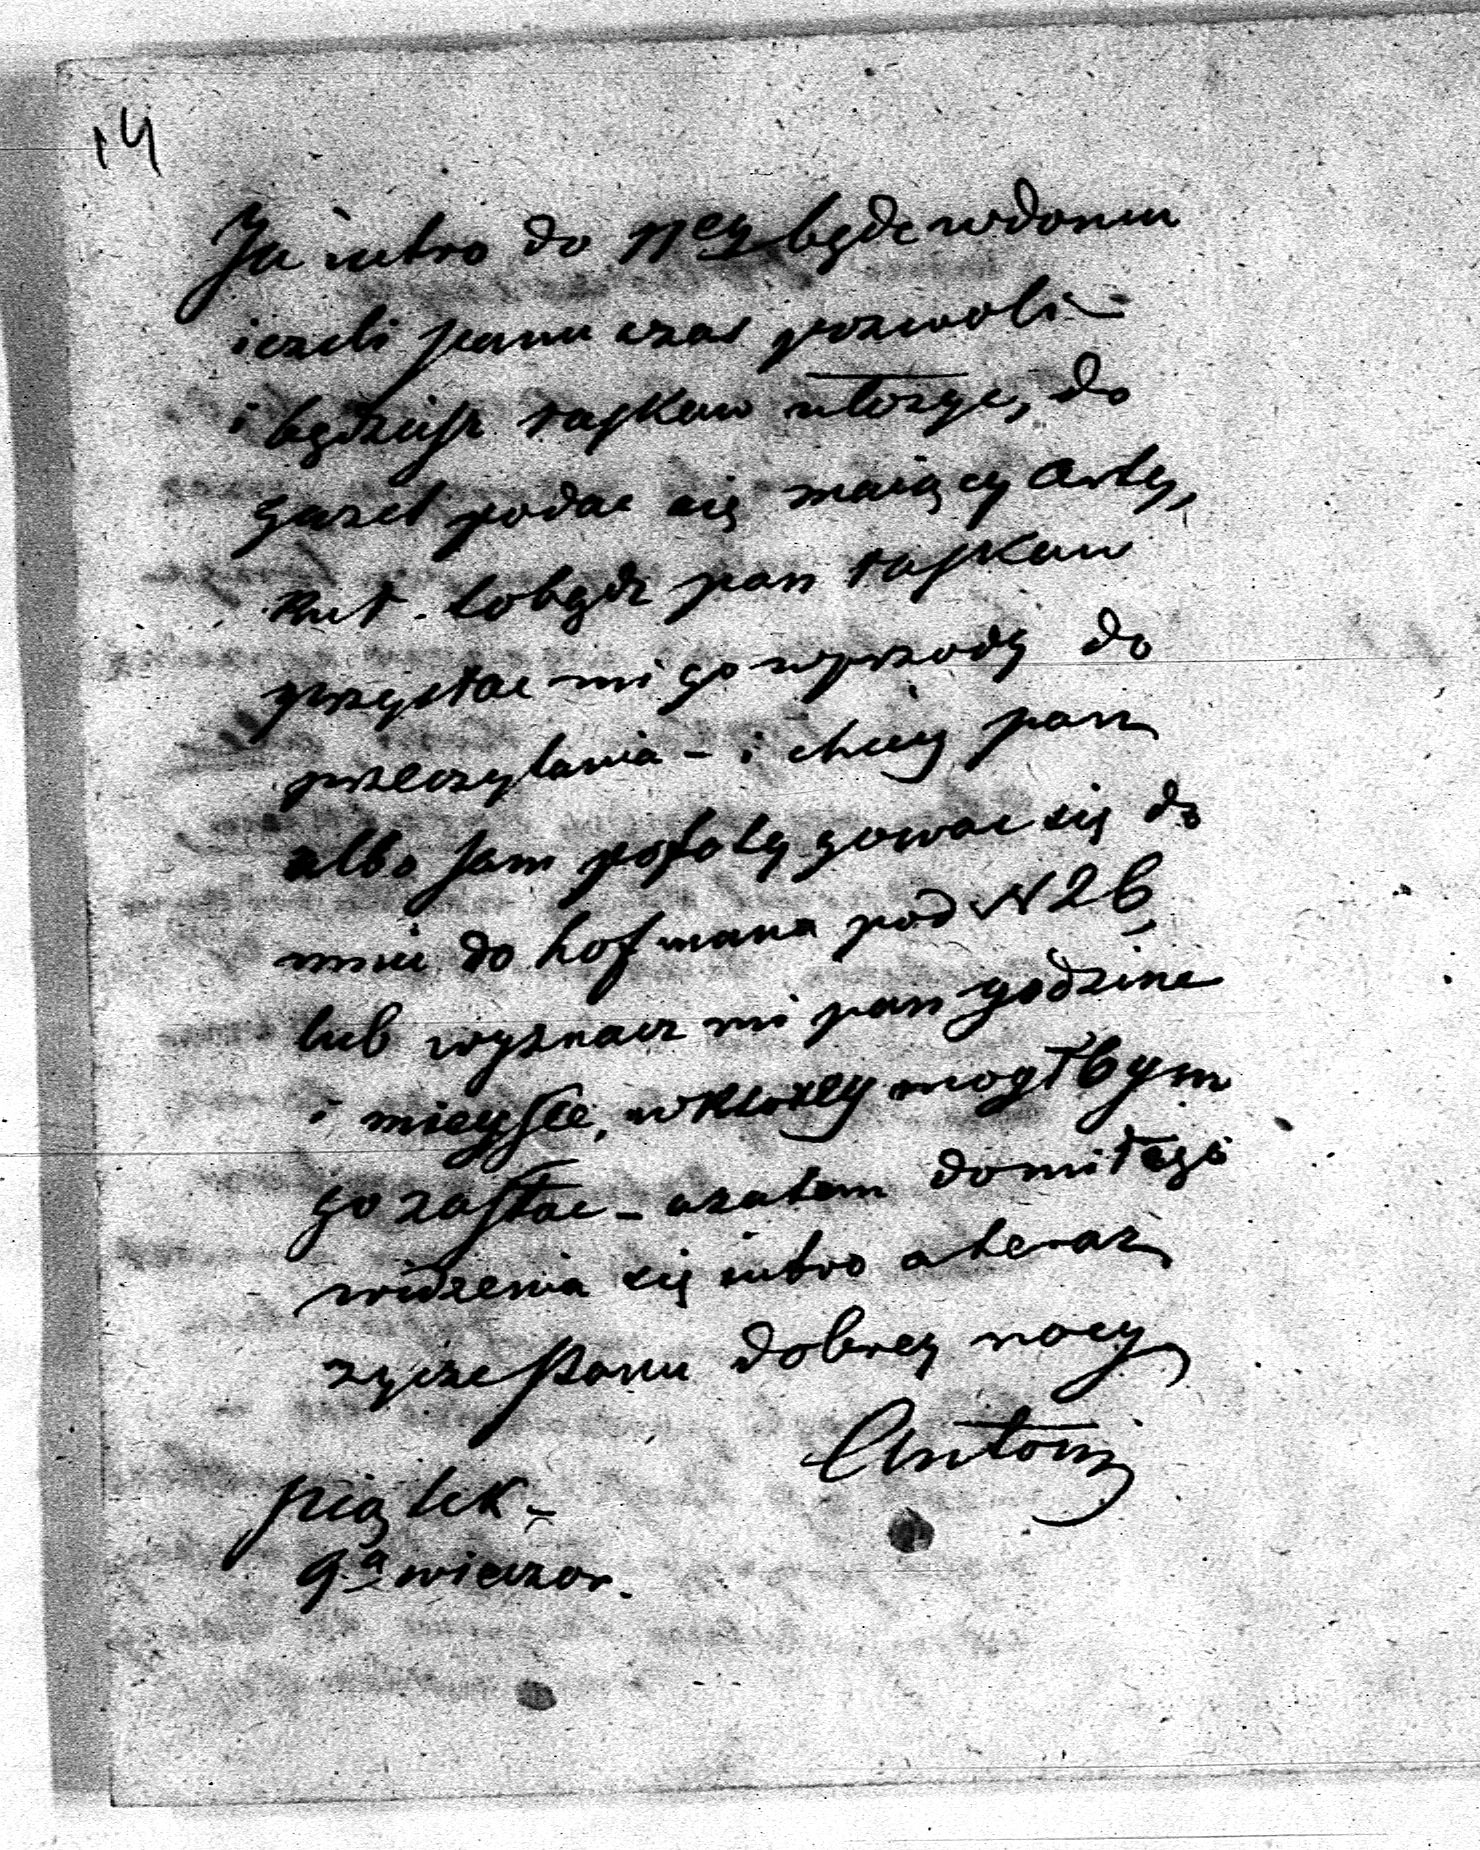 14
Ja iutro do 11ey będę w domu
ieżeli panu czas pozwoli –
i będziesz łaskaw ułożyć, do
gazet podac się maiący Arty,
kuł. to bądz pan łaskaw
przysłac mi go wprzody do
przeczytania – i chciey pan
albo sam pofatygowac się do
mnie do hofmana pod N 26
lub wyznacz mi pan godzine
i mieysce, w ktorey mogłbym
go zastac – a zatem do miłego
widzenia się iutro a teraz
zycze Panu dobrey nocy
Antoni
piątek –
9ª wieczor.